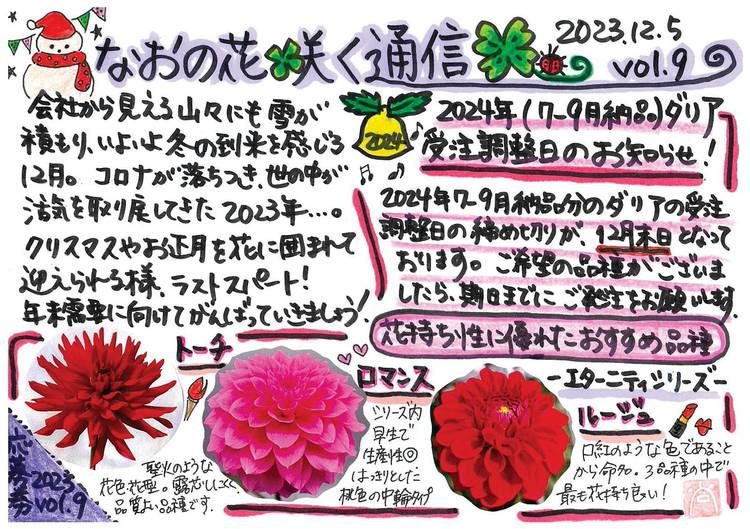 なおの花咲く通信
2023.12.5
vol.9
会社から見える山々にも雪が
積もり、いよいよ冬の到来を感じる
12月。コロナが落ちつき、世の中が
活気を取り戻してきた2023年…。
クリスマスやお正月を花に囲まれて
迎えられる様、ラストスパート!
年末需要に向けてがんばっていきましょう!
2024
2024年(7-9月納品)ダリア
受注調整日のお知らせ!
2024年7-9月納品分のダリアの受注
調整日の締め切りが、12月末日となって
おります。ご希望の品種がございま
したら、期日までにご発注をお願います。
花持ち性に優れたおすすめ品種
-エターニティシリーズ-
トーチ
聖火のような
花色花型。露芯しにくく、
品質よい品種です。
ロマンス
シリーズ内
早生で
生産性◎
はっきりとした
桃色の中輪タイプ
ルージュ
口紅のような色であること
から命名。3品種の中で
最も花持ち良い!
応募券
2023
vol.9